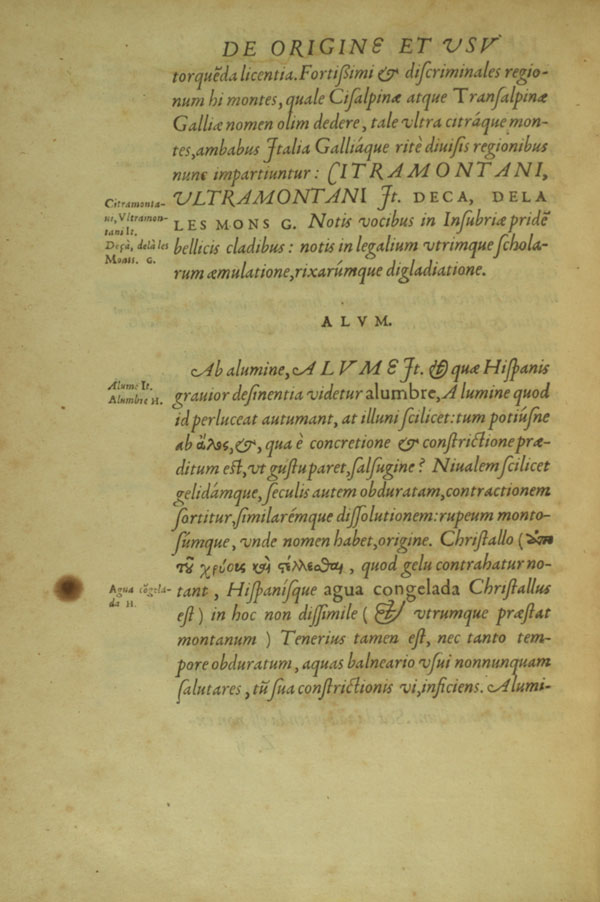 DE ORIGINE ET VSV
torquēda licentia. Fortißimi & discriminales regio-
num hi montes, quale Cisalpinæ atque Transalpinæ
Galliæ nomen olim dedere, tale vltra citráque mon-
tes, ambabus Italia Galliáque ritè diuisis regionibus
nunc impartiuntur: CITRAMONTANI,
VLTRAMONTANI It. DECA, DELA
LES MONS G. Notis vocibus in Insubriæ pridē
bellicis cladibus: notis in legalium vtrimque schola-
rum æmulatione, rixarúmque digladiatione.
Citramonta-
ni, Vltramon-
tani It.
Deçà, delà les
Mons. G.
ALVM.
Ab alumine, ALVME It. & quæ Hispanis
grauior desinentia videtur alumbre, A lumine quod
id perluceat autumant, at illuni scilicet: tum potiúsne
ab ἅλος, &, qua è concretione & constrictione præ-
ditum est, vt gustu paret, salsugine? Niualem scilicet
gelidámque, seculis autem obduratam, contractionem
sortitur, similarémque dissolutionem: rupeum monto-
súmque, vnde nomen habet, origine. Christallo (ἀπὸ
τοῦ , quod gelu contrahatur no-
tant, Hispanísque agua congelada Christallus
est) in hoc non dissimile ( & vtrumque præstat
montanum ) Tenerius tamen est, nec tanto tem-
pore obduratum, aquas balneario vsui nonnunquam
salutares, tū sua constrictionis vi, inficiens. Alumi-
Alume It.
Alumbre H.
Agua cōgela-
da H.